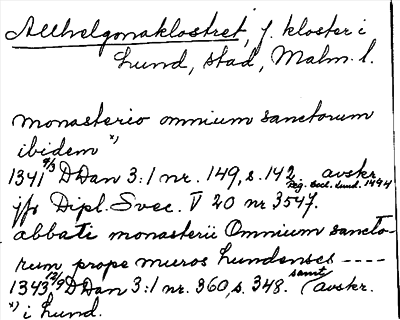 Allhelgonaklostret, f. kloster i
Lund, stad, Malm. l.
monasterio omnium sanctorum
ibidem x)
1341 9/3 DDan 3:1 nr. 149, s. 142 avskr.
Reg. eccl. Lund. 1494
jfr Dipl. Svec. V 20 nr 3547.
abbati monasterii Omnium sancto-
rum prope muros Lundenses ----
1343 12/9 DDan 3:1 nr. 360, s. 348. samt. avskr.
x) i Lund.